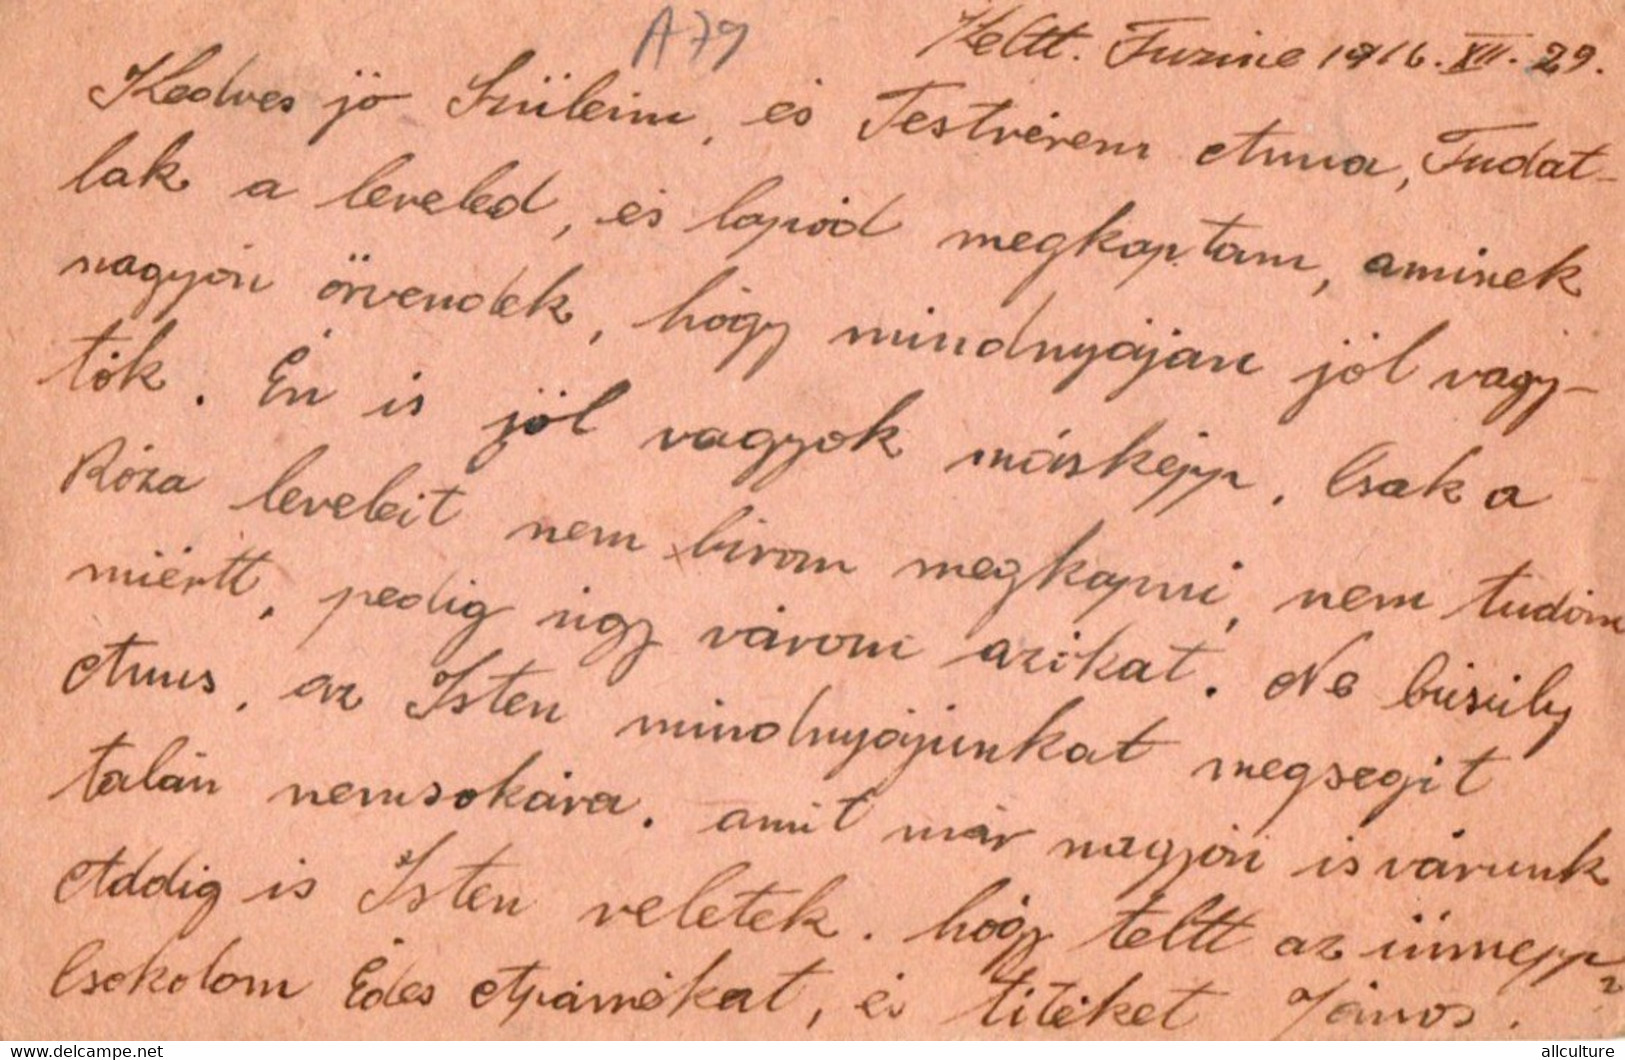 A 79
Keltt. Fuzine 1916. XII. 29.
Kedves jó Szüleim, és Testvérem Anna, Tudat-
lak a leveled, és lapod megkaptam, aminek
nagyón örvendek, hógy mindnyáján jól vagy-
tók. Én is jól vagyok másképp. Csak a
Róza leveleit nem birom megkapni, nem tudóm
miértt, pedig úgy várom azókat. Ne búsúly
Annus, az Isten mindnyájunkat megsegit
talán nemsokára. amit már nagyón is várunk
Addig is Isten veletek. hógy teltt az ünnepp?
Csokolom Édes Apámékat, és titeket János.
https://www.delcampe.net
allculture